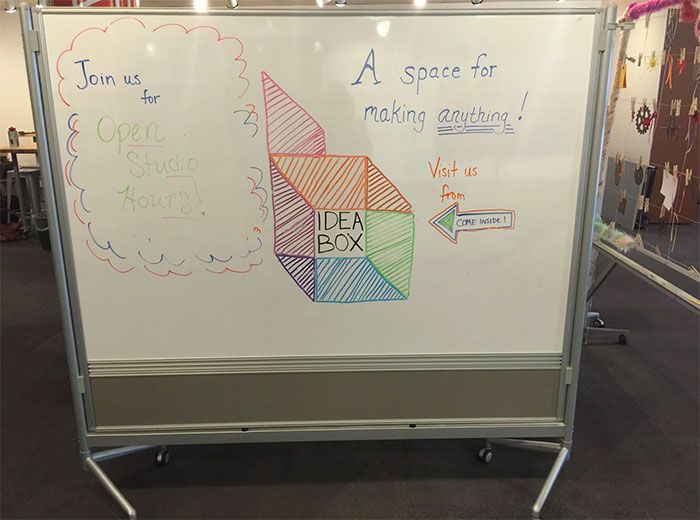 Join us
for
Open
Studio
Hours!
A space for
making anything!
IDEA
BOX
Visit us
from
COME INSIDE!